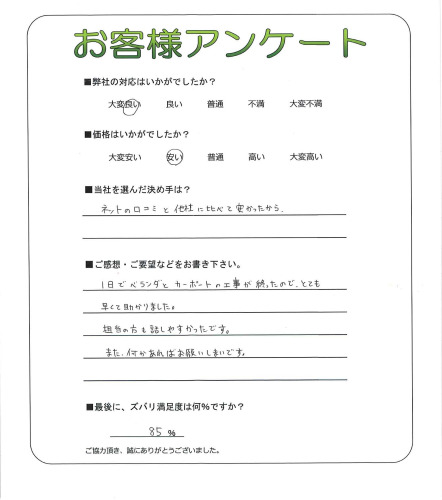 お客様アンケート
■弊社の対応はいかがでしたか？
大変良い 良い 普通 不満 大変不満
■価格はいかがでしたか？
大変安い 安い 普通 高い 大変高い
■当社を選んだ決め手は？
ネットの口コミと他社に比べて安かったから.
■ご感想・ご要望などをお書き下さい。
1日でベランダとカーポートの工事が終ったので、とても
早くて助かりました。
担当の方も話しやすかったです。
また、何かあればお願いしたいです。
■最後に、ズバリ満足度は何%ですか？
85 %
ご協力頂き、誠にありがとうございました。